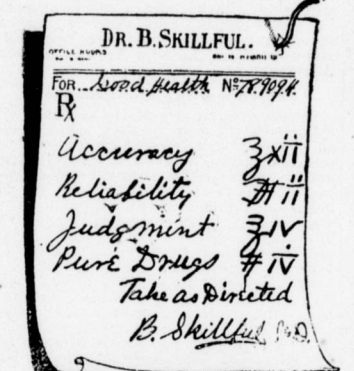 DR. B. SKILLFUL.
OFFICE HOURS
FOR Good Health No 78,909 4.
℞
Accuracy ℥xii
Reliability ℔ii
Judgmint ℥iv
Pure Drugs # iv
Take as Directed
B. Skillful M.D.